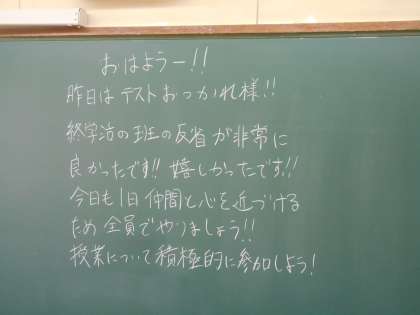 おはようー!!
昨日はテストおつかれ様!!
終学活の班の反省が非常に
良かったです!! 嬉しかったです!!
今日も1日仲間と心を近づける
ため全員でやりましょう!!
授業について積極的に参加しよう!